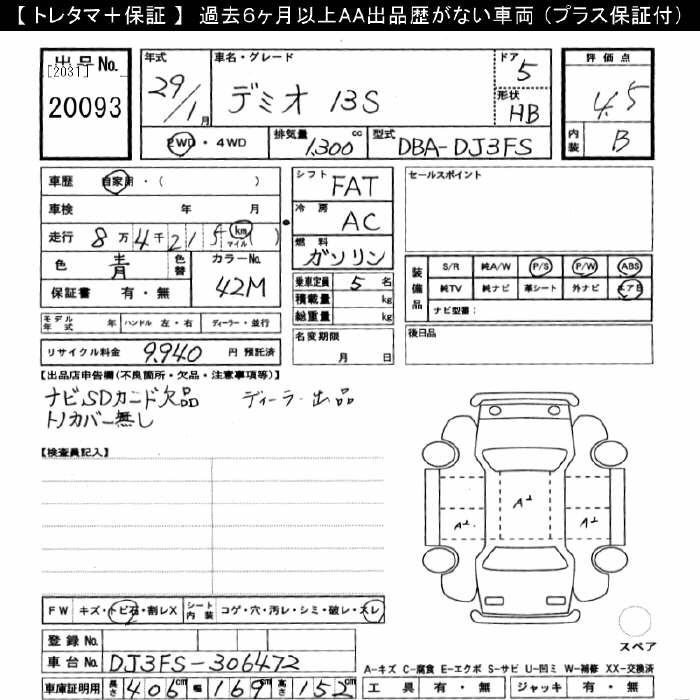 【トレタマ+保証】 過去6ヶ月以上AA出品歴がない車両 (プラス保証付)
出品No. [2031] 20093
年式 29/1月
車名・グレード デミオ 13S
ドア 5
形状 HB
評価点 4.5
内装 B
2WD・4WD
排気量 1,300 cc
型式 DBA-DJ3FS
車歴 自家用・( )
車検 年 月
走行 8万4千215 km マイル ( )
色 青 色替 カラーNo. 42M
保証書 有・無
シフト FAT
冷房 AC
燃料 ガソリン
乗車定員 5名
積載量 kg
総重量 kg
セールスポイント
装備品 S/R 純A/W P/S P/W ABS
純TV 純ナビ 革シート 外ナビ エアB
ナビ型番:
モデル年式 年 ハンドル 左・右 ディーラー・並行
名変期限 月 日
後日品
リサイクル料金 9,940 円 預託済
【出品店申告欄(不良箇所・欠品・注意事項等)】
ナビSDカード欠品 ディーラー出品
トノカバー無し
【検査員記入】
A1
A1 A1
FW キズ・トビ石・割レX シート内装 コゲ・穴・汚レ・シミ・破レ・スレ
スペア
登録No.
車台No. DJ3FS-306472
A-キズ C-腐食 E-エクボ S-サビ U-凹ミ W-補修 XX-交換済
車庫証明用 長さ 406cm 幅 169cm 高さ 152cm
工具 有・無 ジャッキ 有・無